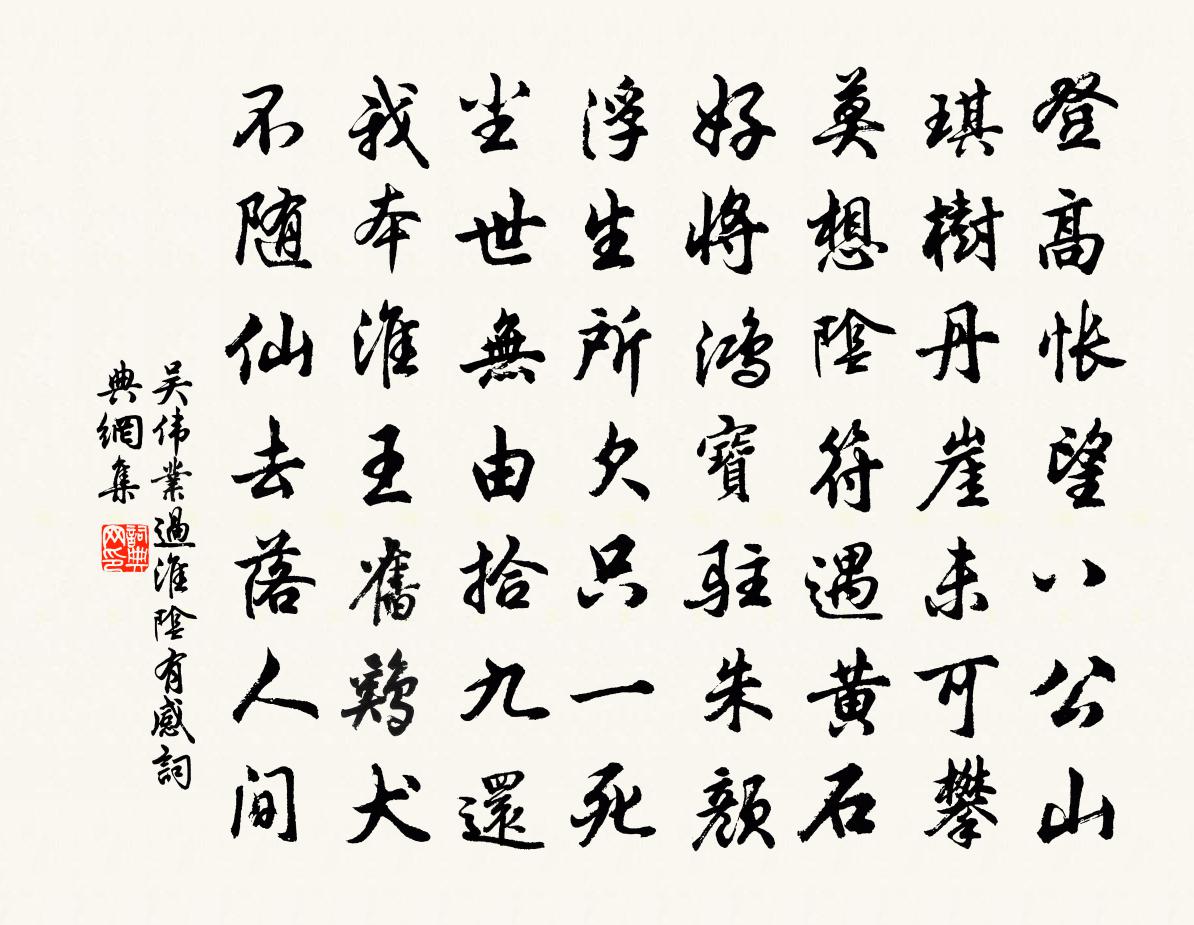 登高怅望八公山
琪樹丹崖未可攀
莫想陰符遇黃石
好將鴻寶駐朱顏
浮生所欠只一死
尘世無由拾九還
我本淮王舊鷄犬
不随仙去落人间
吴伟業過淮陰有感詞
典網集
詞典
网印